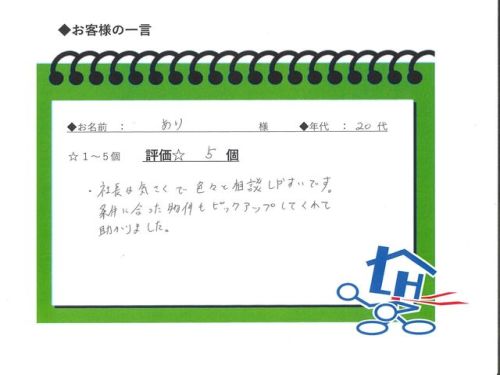 ◆お客様の一言
◆お名前 : あり 様 ◆年代 : 20 代
☆1～5個 評価☆ 5 個
・社長は気さくで色々と相談しやすいです。
条件に合った物件もピックアップしてくれて
助かりました。
LH